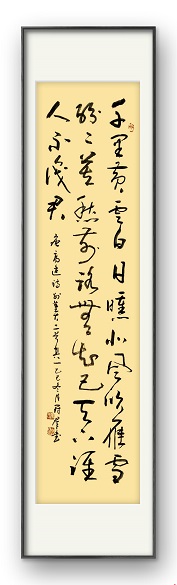 千里黄云白日曛北风吹雁雪
纷纷莫愁前路无知己天下谁
人不识君
唐高适诗别董大二首其一乙巳冬月